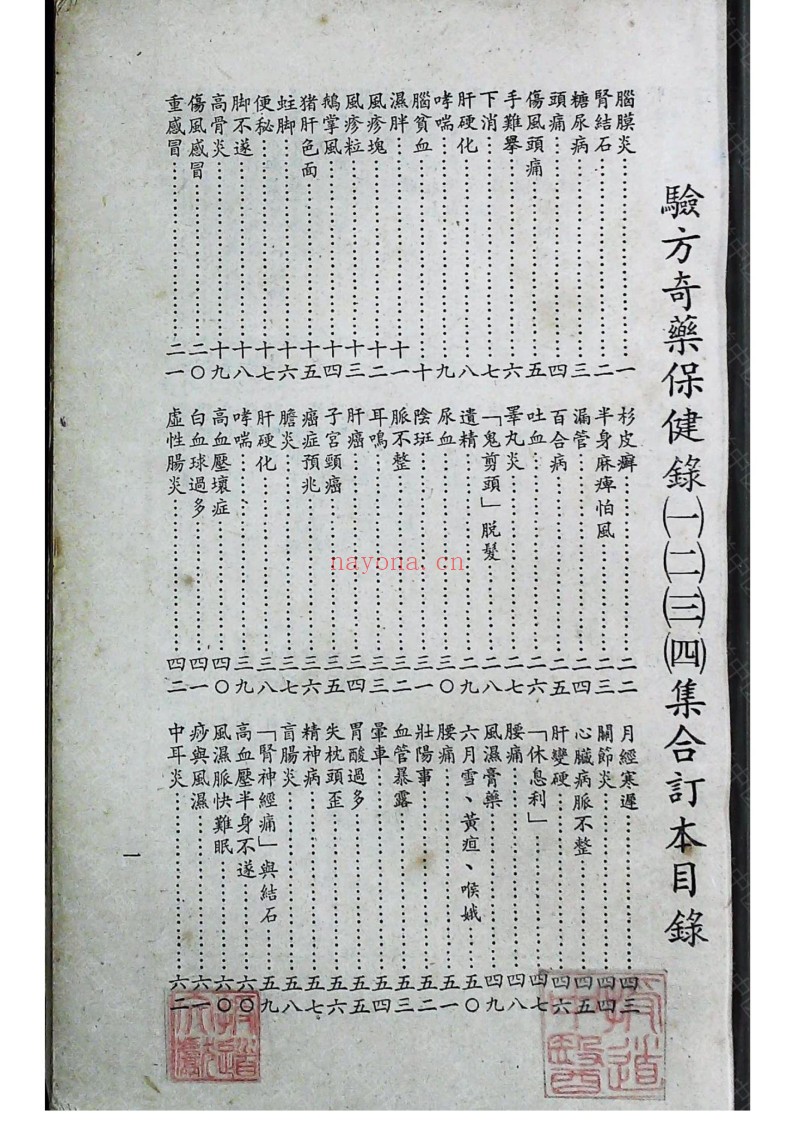 驗方奇藥保健錄㈠㈡㈢㈣集合訂本目錄
腦膜炎……一
腎結石……二
糖尿病……三
頭痛……四
傷風頭痛……五
手難舉……六
下消……七
肝硬化……八
哮喘……九
腦貧血……十
濕胖……十一
風疹塊……十二
風疹粒……十三
鵝掌風……十四
猪肝色面……十五
蛀脚……十六
便秘……十七
脚不遂……十八
高骨炎……十九
傷風感冒……二〇
重感冒……二一
杉皮癬……二二
半身麻痺怕風……二三
漏管……二四
百合病……二五
吐血……二六
睪丸炎……二七
「鬼剪頭」脱髮……二八
遺精……二九
尿血……三〇
陰斑……三一
脈不整……三二
耳鳴……三三
肝癌……三四
子宮頸癌……三五
癌症預兆……三六
膽炎……三七
肝硬化……三八
哮喘……三九
高血壓壞症……四〇
白血球過多……四一
虛性腸炎……四二
月經寒遲……四三
關節炎……四四
心臟病脈不整……四五
肝變硬……四六
「休息利」……四七
腰痛……四八
風濕膏藥……四九
六月雪、黃疸、喉娥……五〇
腰痛……五一
壯陽事……五二
血管暴露……五三
暈車……五四
胃酸過多……五五
失枕頭歪……五六
精神病……五七
盲腸炎……五八
「腎神經痛」與結石……五九
高血壓半身不遂……六〇
風濕脈快難眠……六〇
痧與風濕……六一
中耳炎……六二
一
nayona.cn